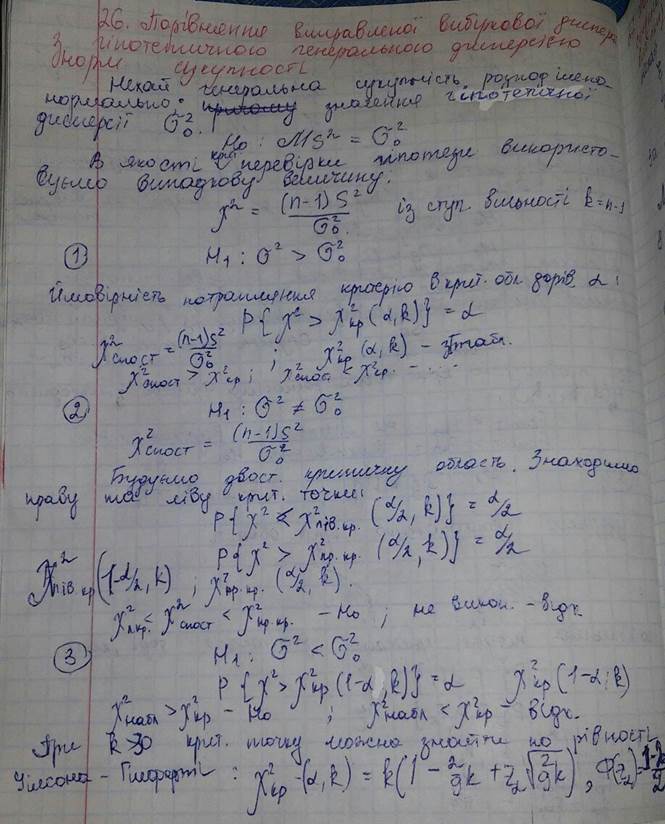 26. Порівняння виправленої вибуркової дисперс.
гіпотетичного генеральною дисперсією
Знорм сукупності
Нехай генеральна сукупність розподілена
нормально. значення гіпотетичної
дисперсії σ₀².
H₀ : MS² = σ₀²
В якості крит. перевірки гіпотези використо-
вуємо випадкову величину.
χ² = (n-1)S²/σ₀² із ступ. вільності k=n-1
① H₁ : σ² > σ₀²
Ймовірність потрапляння критерію в крит. обл дорів. α :
P{χ² > χ²кр (α, k)} = α
χ²спост = (n-1)S²/σ₀² ; χ²кр (α, k) – з табл.
χ²спост > χ²кр ; χ²спост < χ²кр. - ...
② H₁ : σ² ≠ σ₀²
χ²спост = (n-1)S²/σ₀²
Будуємо двост. критичну область. Знаходимо
праву та ліву крит. точки:
P{χ² < χ²лів.кр. (α/2, k)} = α/2
P{χ² > χ²пр.кр. (α/2, k)} = α/2
χ²лів кр (1-α/2, k) ; χ²пр.кр. (α/2, k).
χ²лкр. < χ²спост < χ²пр.кр. – H₀ ; не викон. – відх.
③ H₁ : σ² < σ₀²
P{χ² > χ²кр (1-α, k)} = α χ²кр (1-α; k)
χ²набл > χ²кр – H₀ ; χ²набл < χ²кр – відх.
При k>30 крит. точку можна знайти по рівності
Уілсона – Гілферті : χ²кр (α, k) = k(1 - 2/9k + z₂√2/9k) , Φ(z₂)=